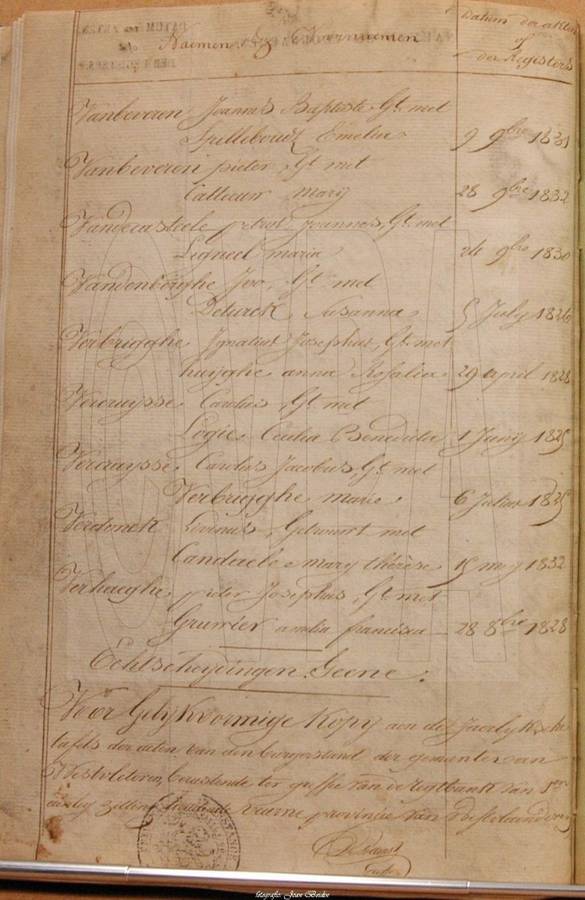 Naemen & Voornaemen
Datum der akten
of
der Registers
Vanbeveren Joannes Baptiste Gt. met
Spilleboudt Emelia 9 9bre 1831
Vanbeveren pieter Gt met
Callieuw Mary 28 9bre 1832
Vandecasteele petrus Joannes, Gt. met
Ligneel maria 24 9bre 1830
Vandenberghe Ivo, Gt. met
Deturck Susanna 5 July 1826
Verbrigghe Ignatius Josephus, Gt. met
huyghe anna Rosalia 29 april 1828
Vercruysse Carolus Gt. met
Logie Cecilia Benedicta 1 Juny 1825
Vercruysse Carolus Jacobus, Gt met
Verbrugghe marie 6 Julius 1825
Verdonck Livinus, Getrouwt met
Candaele mary thérèse 15 mey 1832
Verhaeghe pieter Josephus, Gt. met
Gruwier amelia francisca 28 8bre 1828
Echtscheydingen Geene.
Voor Gelykvormige Kopy aen de Jaerlyksche
tafels der akten van den burgerstand der gemeente van
Westvleteren, berustende ter griffie van de regtbank van 1sten
aenleg zittende veurne provincie van Westvlaenderen
fotografie: Joan Beider